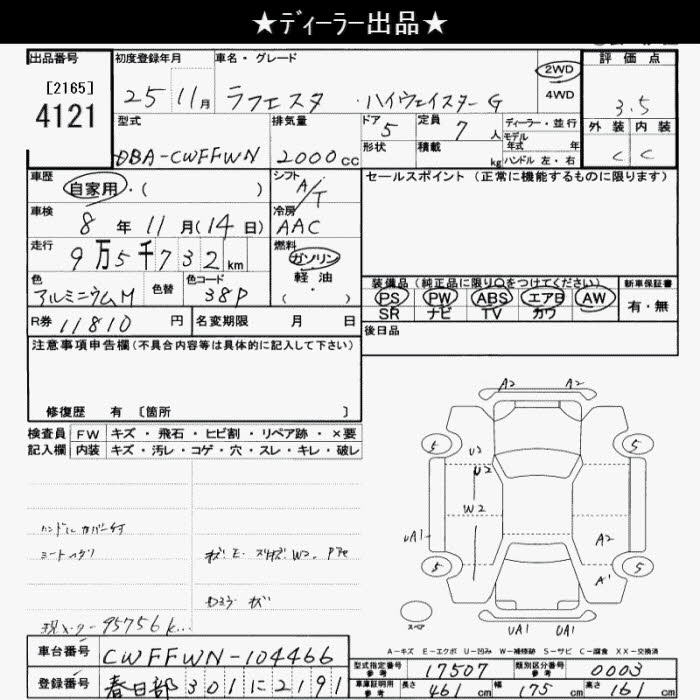 ★ディーラー出品★
出品番号 初度登録年月 車名・グレード 評価点
[2165]
4121
25 11月 ラフェスタ ・ハイウェイスターG 2WD 4WD 3.5
型式 排気量 ドア 5 定員 7人 ディーラー・並行 外装 内装
モデル年式 年
DBA-CWFFWN 2000cc 形状 積載 kg ハンドル 左・右 C C
車歴 自家用・( ) シフト A/T セールスポイント (正常に機能するものに限ります)
車検 8年11月(14日) 冷房 AAC
走行 9万5千732km 燃料 ガソリン 軽油 ・( )
色 アルミニウムM 色替 色コード 38P
装備品 (純正品に限り○をつけてください) 新車保証書
PS PW ABS エアB AW 有・無
SR ナビ TV カワ
R券 11810円 名変期限 月 日
後日品
注意事項申告欄(不具合内容等は具体的に記入して下さい)
修復歴 有 〔箇所 〕
検査員 FW キズ・飛石・ヒビ割・リペア跡・×要
記入欄 内装 キズ・汚レ・コゲ・穴・スレ・キレ・破レ
A2 A2
5 5
U2
U2
W2
UA1 A2
5 5
A1
スペア
UA1 UA1
ハンドルカバー付
現メーター95756k...
A-キズ E-エクボ U-凹み W-補修跡 S-サビ C-腐食 XX-交換済
車台番号 CWFFWN-104466
登録番号 春日部 301 に 2191
型式指定番号 参考 17507 類別区分番号 参考 0003
車庫証明用 参考 長さ 461cm 幅 175cm 高さ 161cm